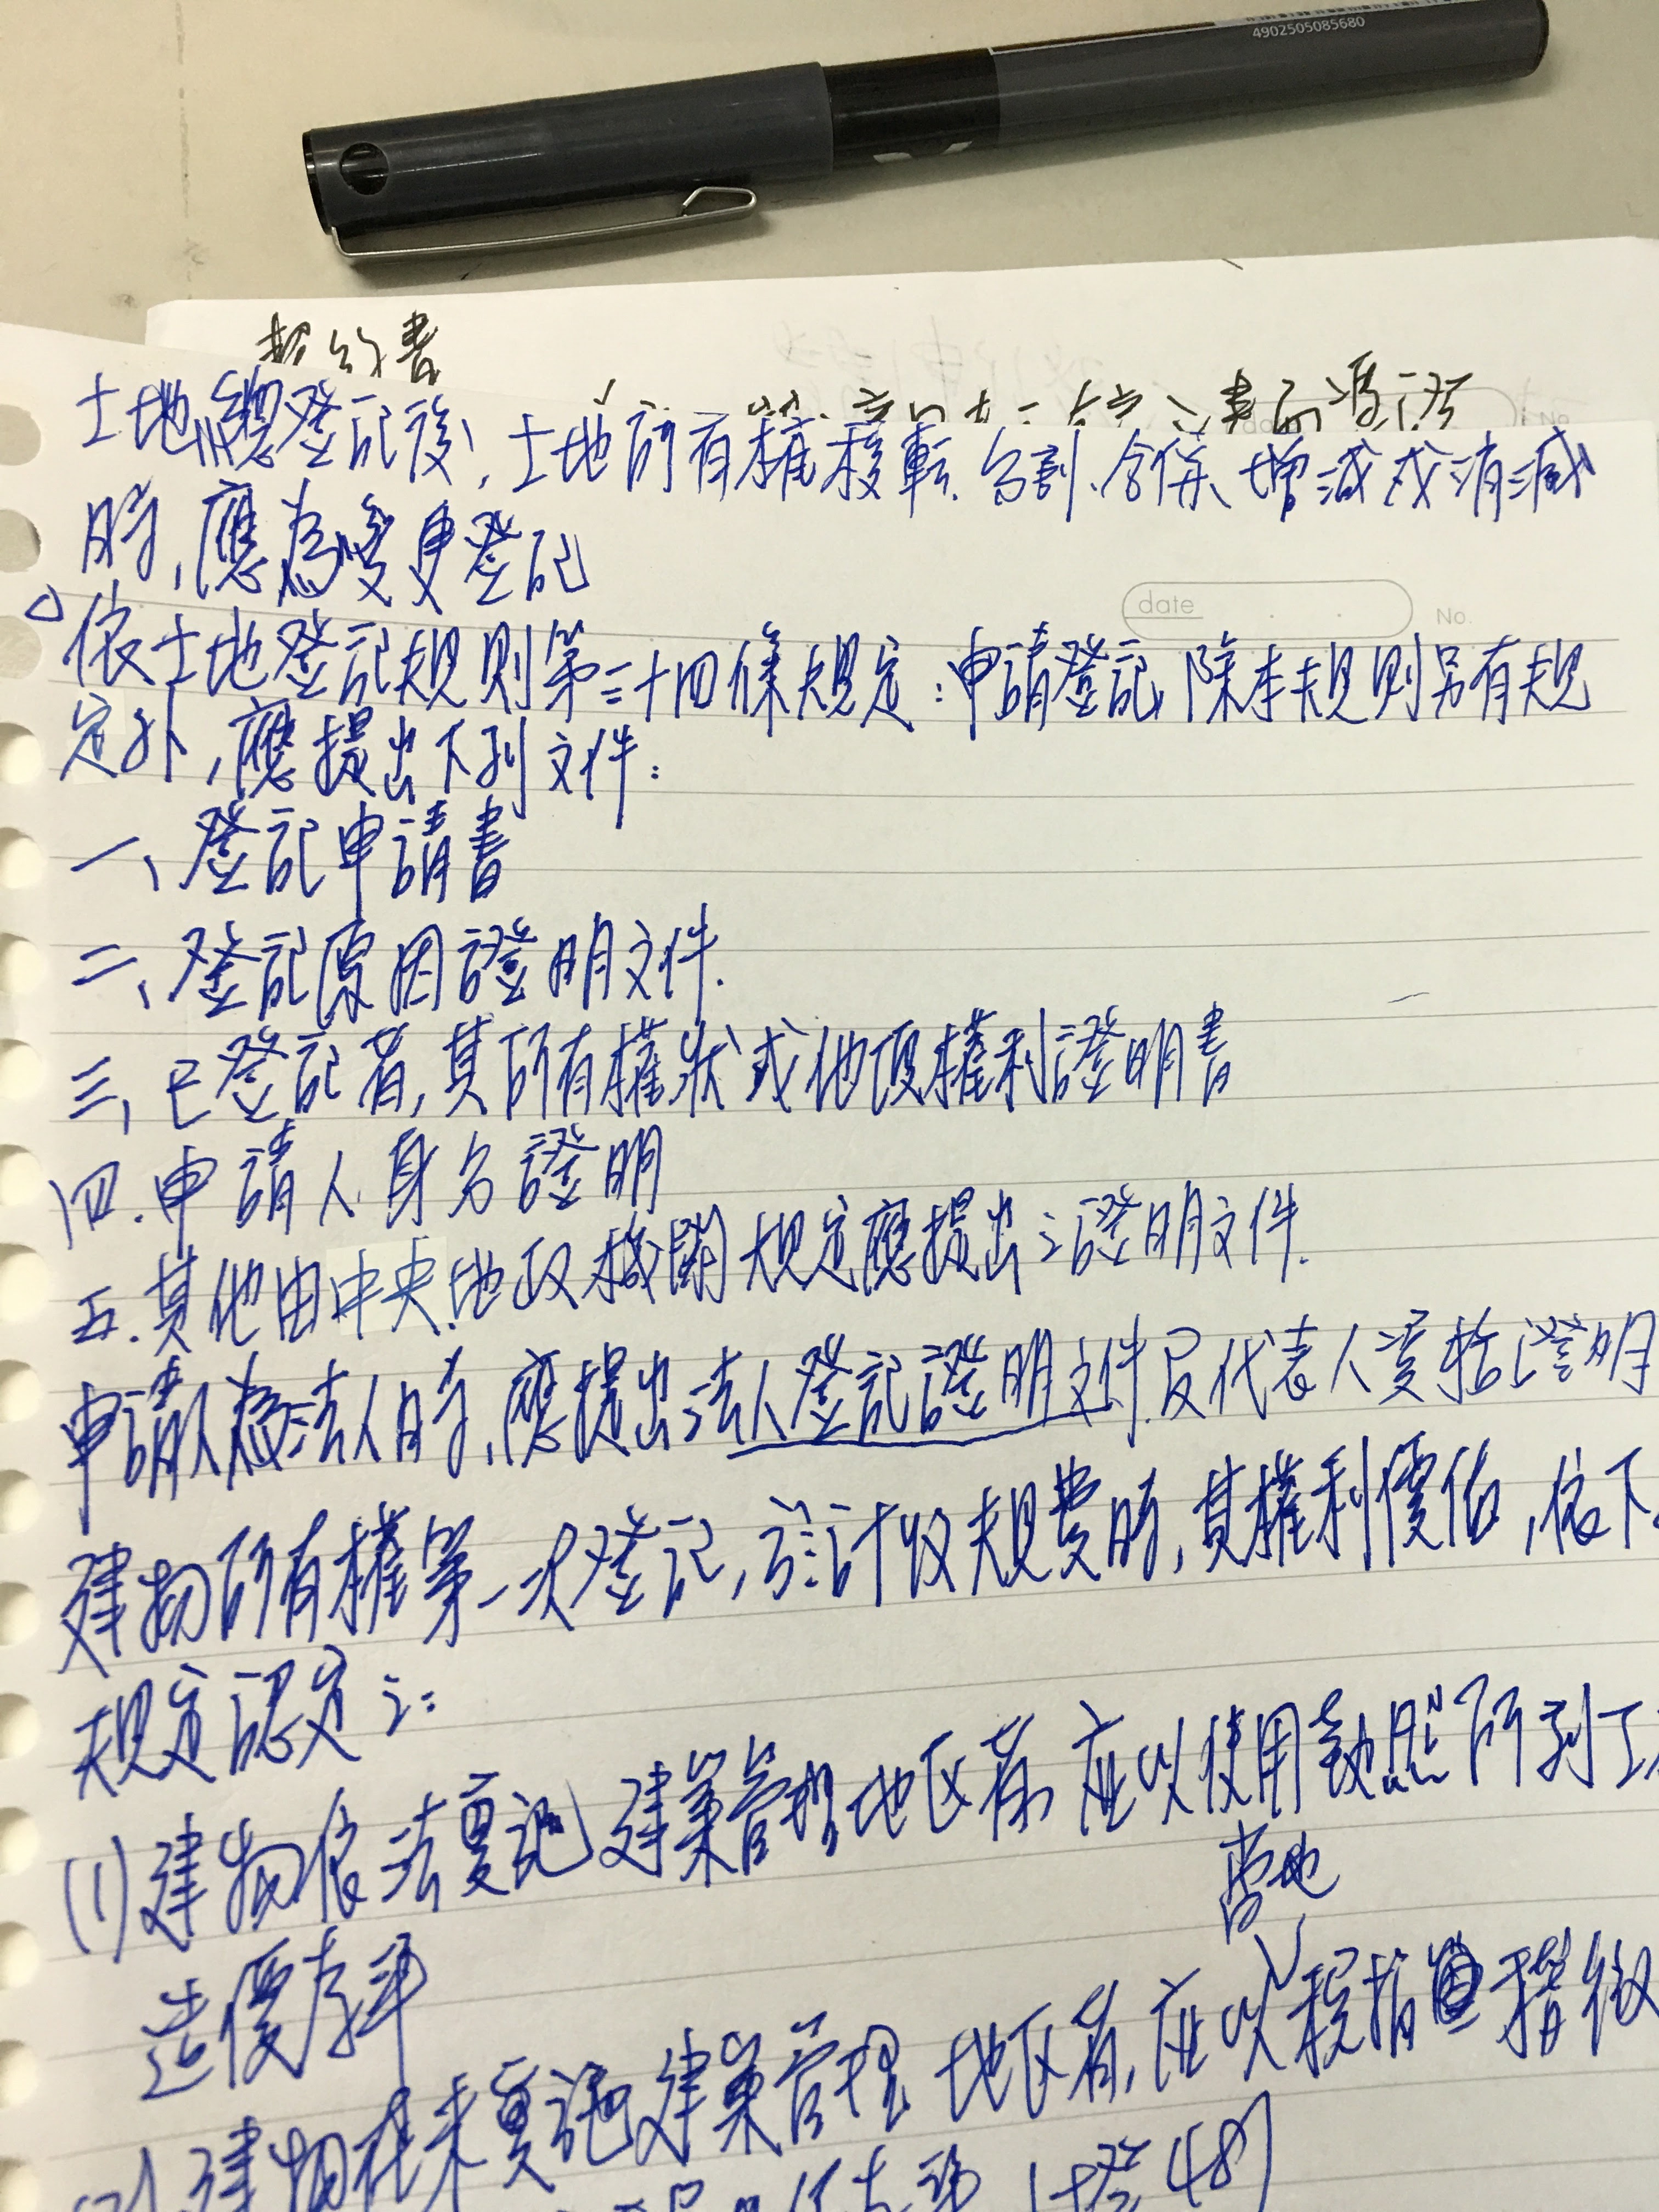 4902505085680
契約書
土地總登記後,土地所有權移轉、分割、合併、增減或消滅
時,應為變更登記
date No.
依土地登記規則第三十四條規定:申請登記,除本規則另有規
定外,應提出下列文件:
一、登記申請書
二、登記原因證明文件.
三、已登記者,其所有權狀或他項權利證明書
四.申請人身分證明
五.其他由中央地政機關規定應提出之證明文件.
申請人為法人時,應提出法人登記證明文件及代表人資格證明
建物所有權第一次登記,於計收規費時,其權利價值,依下
規定認定之:
(1)建物依法實施建築管理地區者,應以使用執照所列工
造價為準
當地
(2)建物在未實施建築管理地區者,應以稅捐稽徵
(土登48)